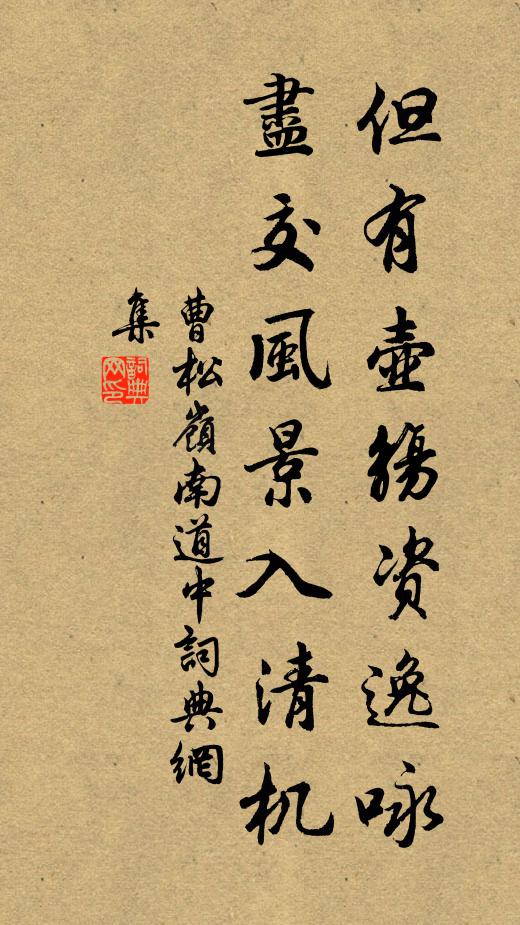 但有壺觴資逸咏
盡交風景入清机
曹松嶺南道中詞典網
集
詞典
网印